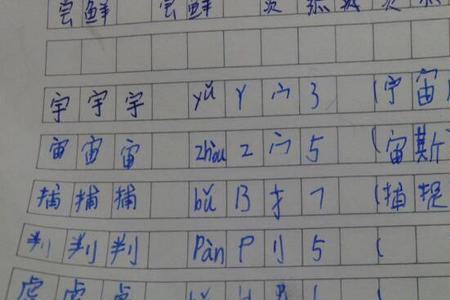 尝鲜 尝鲜
宇宇宇 yǔ Y 宀 3 (宇宙
宙宙宙 zhòu Z 宀 5 (宙斯
捕捕捕 bǔ B 扌 7 (捕捉
判判判 pàn P 刂 5 (